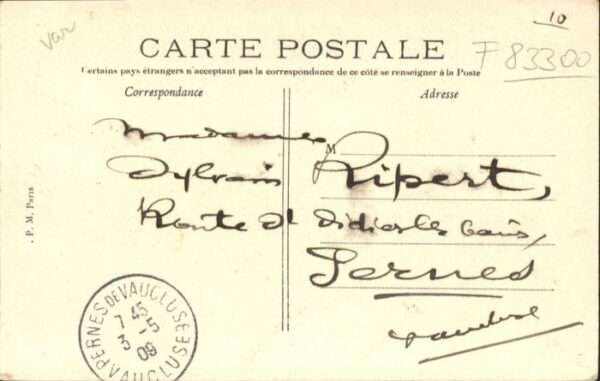 var
10
CARTE POSTALE
F 83300
Certains pays étrangers n'acceptant pas la correspondance de ce côté se renseigner à la Poste
Correspondance
Adresse
M
Madame
Sylvain Ripert,
Route St Didier les bains,
Pernes
Vaucluse
P. M. Paris
PERNES DE VAUCLUSE
7 45
3 -5
09
VAUCLUSE